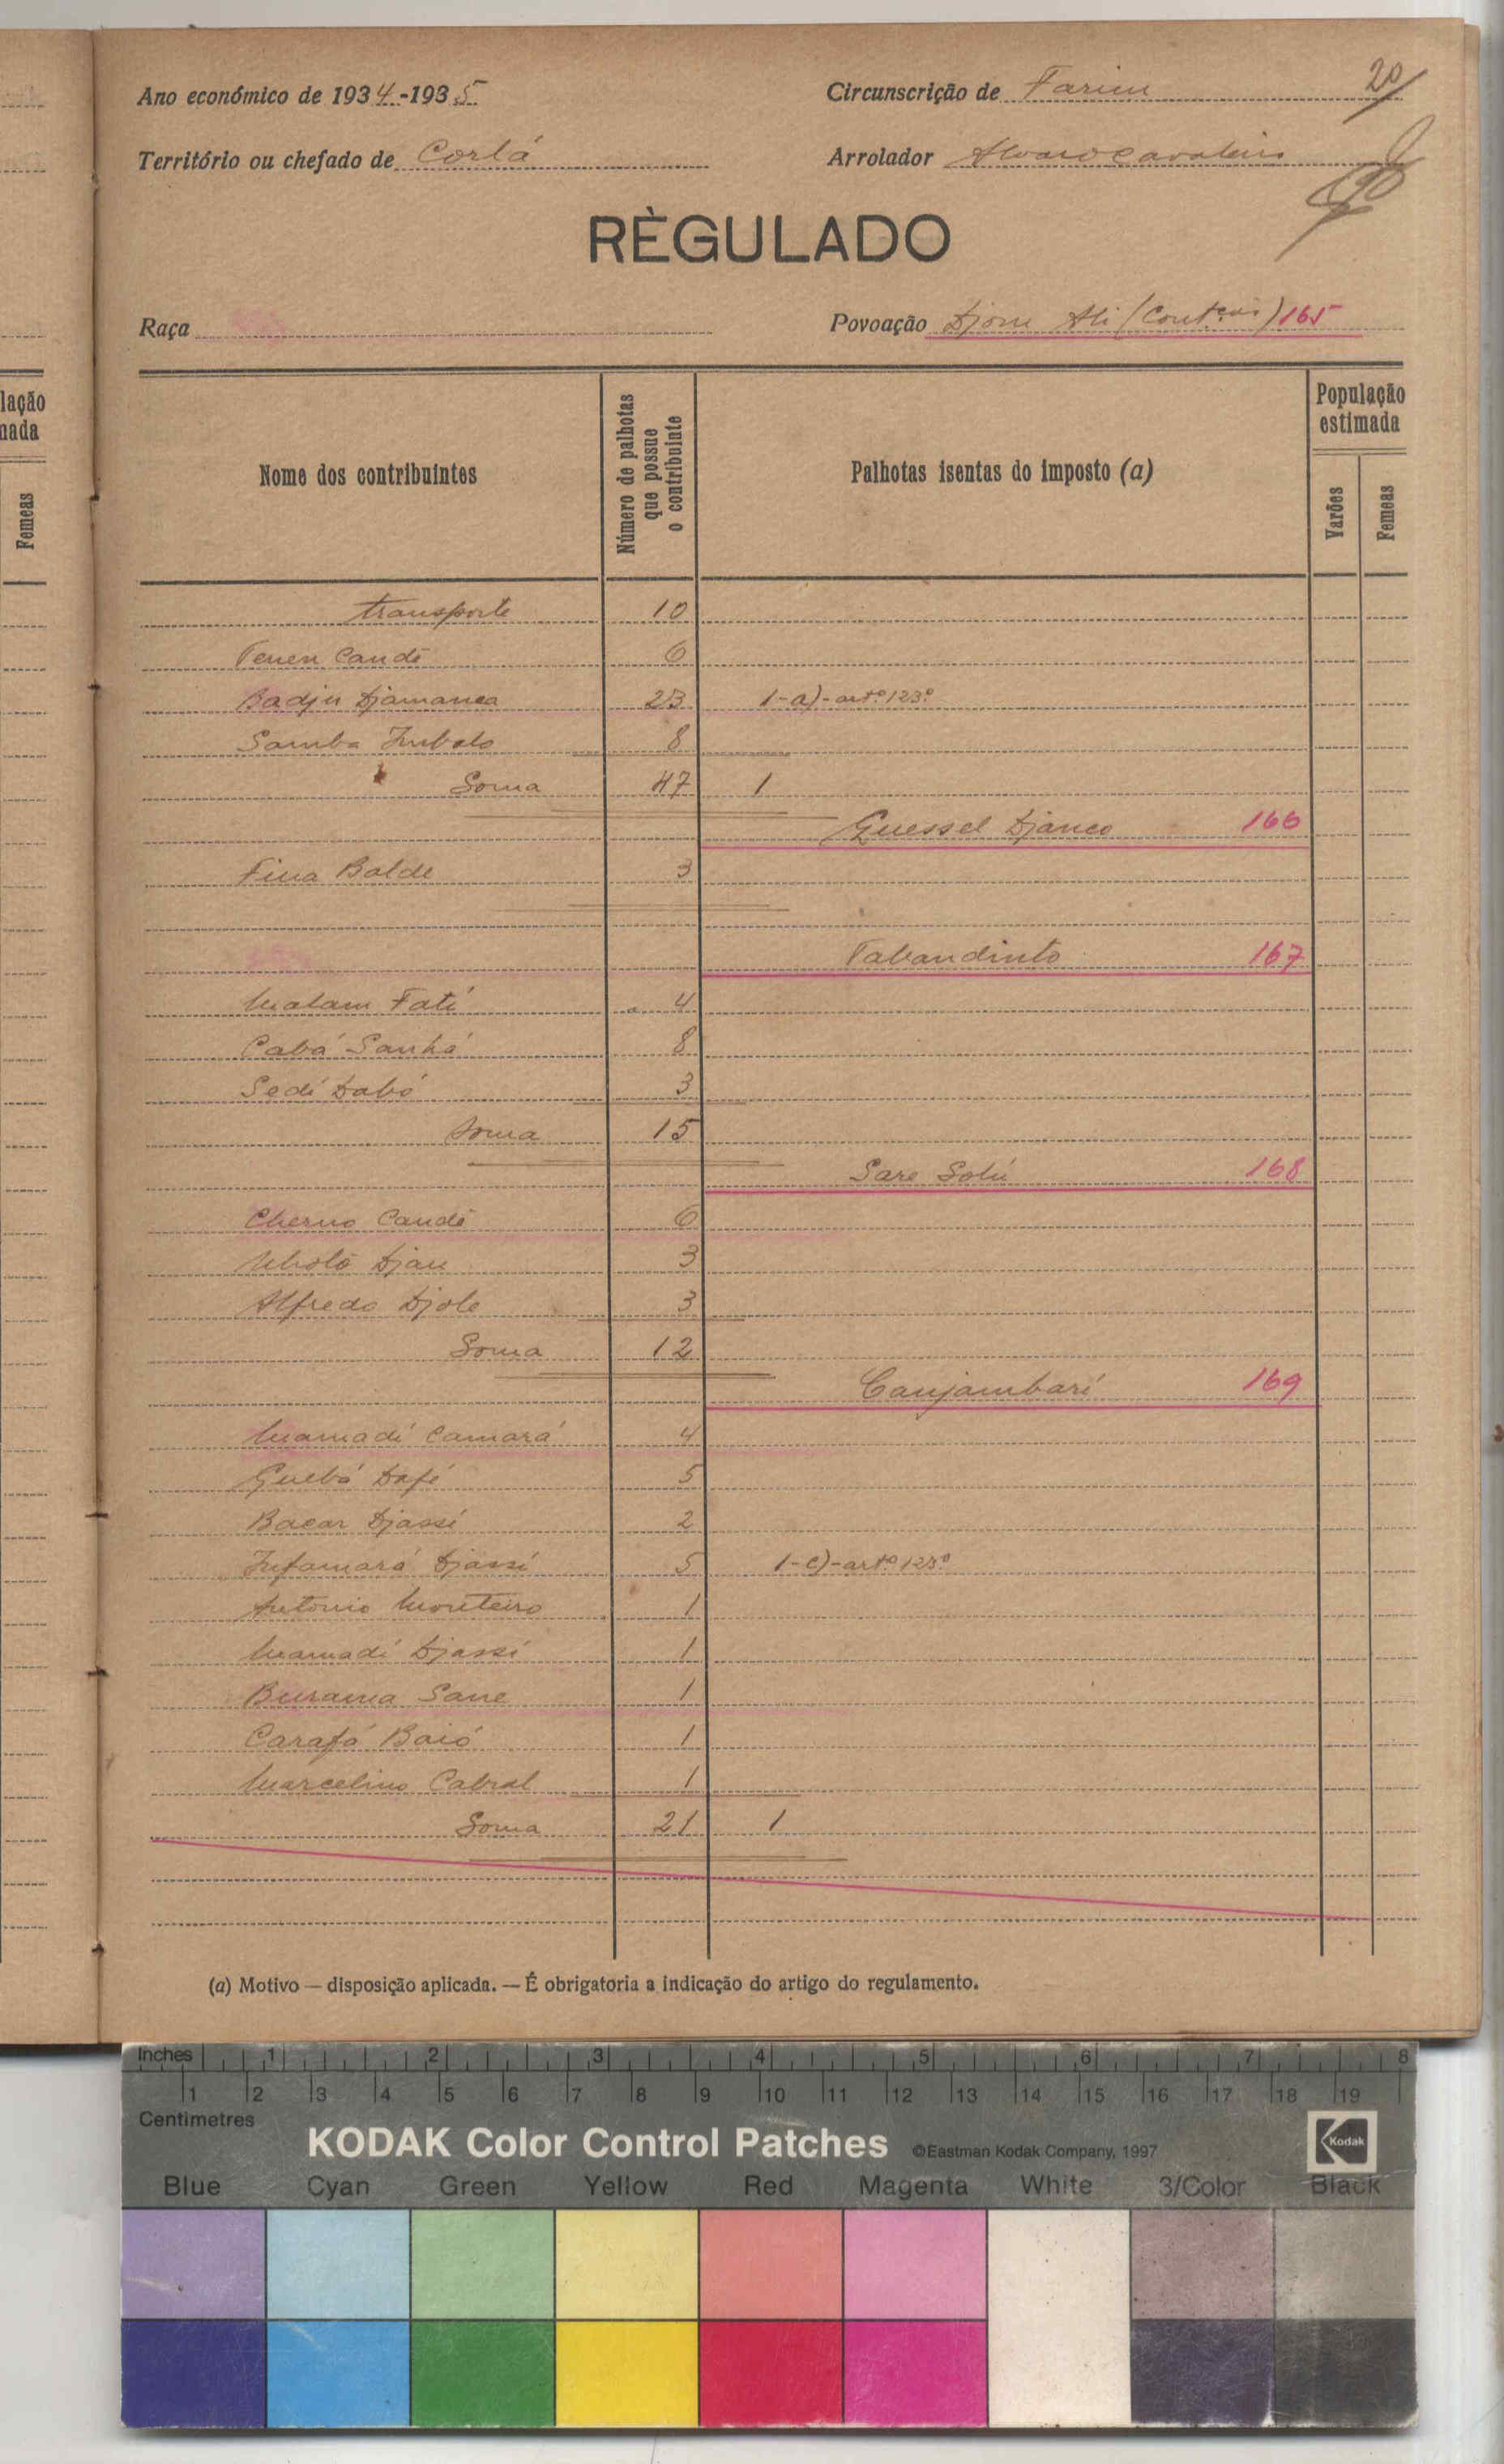 20
Ano económico de 1934-1935
Circunscrição de Farim
Território ou chefado de Corlá
Arrolador Alvaro Cavaleiro
RÈGULADO
Raça
Povoação Djom Ali (Cont.) 165
lação
nada
Femeas
Nome dos contribuintes
Número de palhotas que possue o contribuinte
Palhotas isentas do imposto (a)
População estimada
Varões
Femeas
transporte 10
Tenen Candé 6
Badju Djamanca 23 1-a)-artº 123º
Samba Imbalo 8
Soma 47 1
Guessel Djanco 166
Fina Balde 3
Tabandinto 167
Malam Fati 4
Cabá Sanhá 8
Sedi Dabó 3
Soma 15
Sare Solú 168
Cherno Candé 6
Djau 3
Alfredo Djolo 3
Soma 12
Canjambari 169
Mamadi Camará 4
Guebá Dafé 5
Bacar Djassi 2
Infamará Djassi 5 1-c)-artº 123º
Antonio Monteiro 1
Mamadi Djassi 1
Burama Sane 1
Carafá Baió 1
Marcelino Cabral 1
Soma 21 1
(a) Motivo — disposição aplicada. — É obrigatoria a indicação do artigo do regulamento.
Inches 1 2 3 4 5 6 7 8
1 2 3 4 5 6 7 8 9 10 11 12 13 14 15 16 17 18 19
Centimetres
KODAK Color Control Patches ©Eastman Kodak Company, 1997 Kodak
Blue Cyan Green Yellow Red Magenta White 3/Color Black